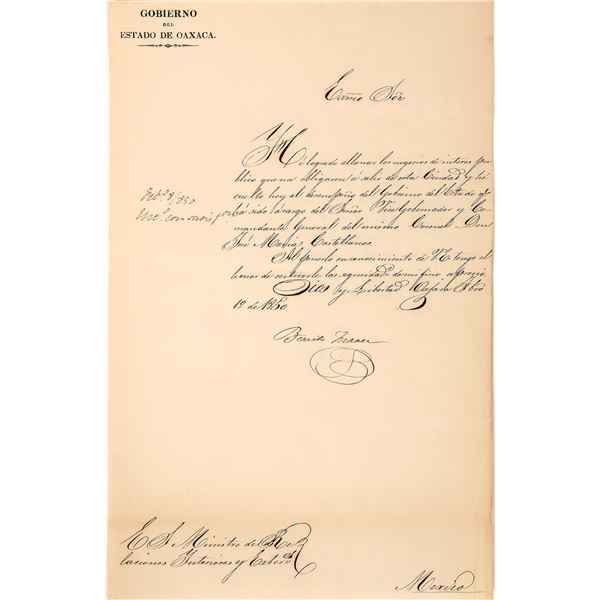 GOBIERNO
DEL
ESTADO DE OAXACA.
Exmo Sor
He logrado allanar los negocios de interes pu-
blico que me obligaron á salir de esta Ciudad y he
vuelto hoy al desempeño del Gobierno del Estado q̃
ha sido á cargo del Señor Vice Gobernador y Co-
mandante General del mismo Coronel Don
José Maria Castellanos.
Al ponerlo en conocimiento de V.E. tengo el
honor de reiterarle las seguridades de mi fino aprecio
Dios y Libertad Oajaca Fbro
1º de 1850
Benito Juarez
Febº 8/850.
E. S. Ministro de Re-
laciones Interiores y Exters
Mexico